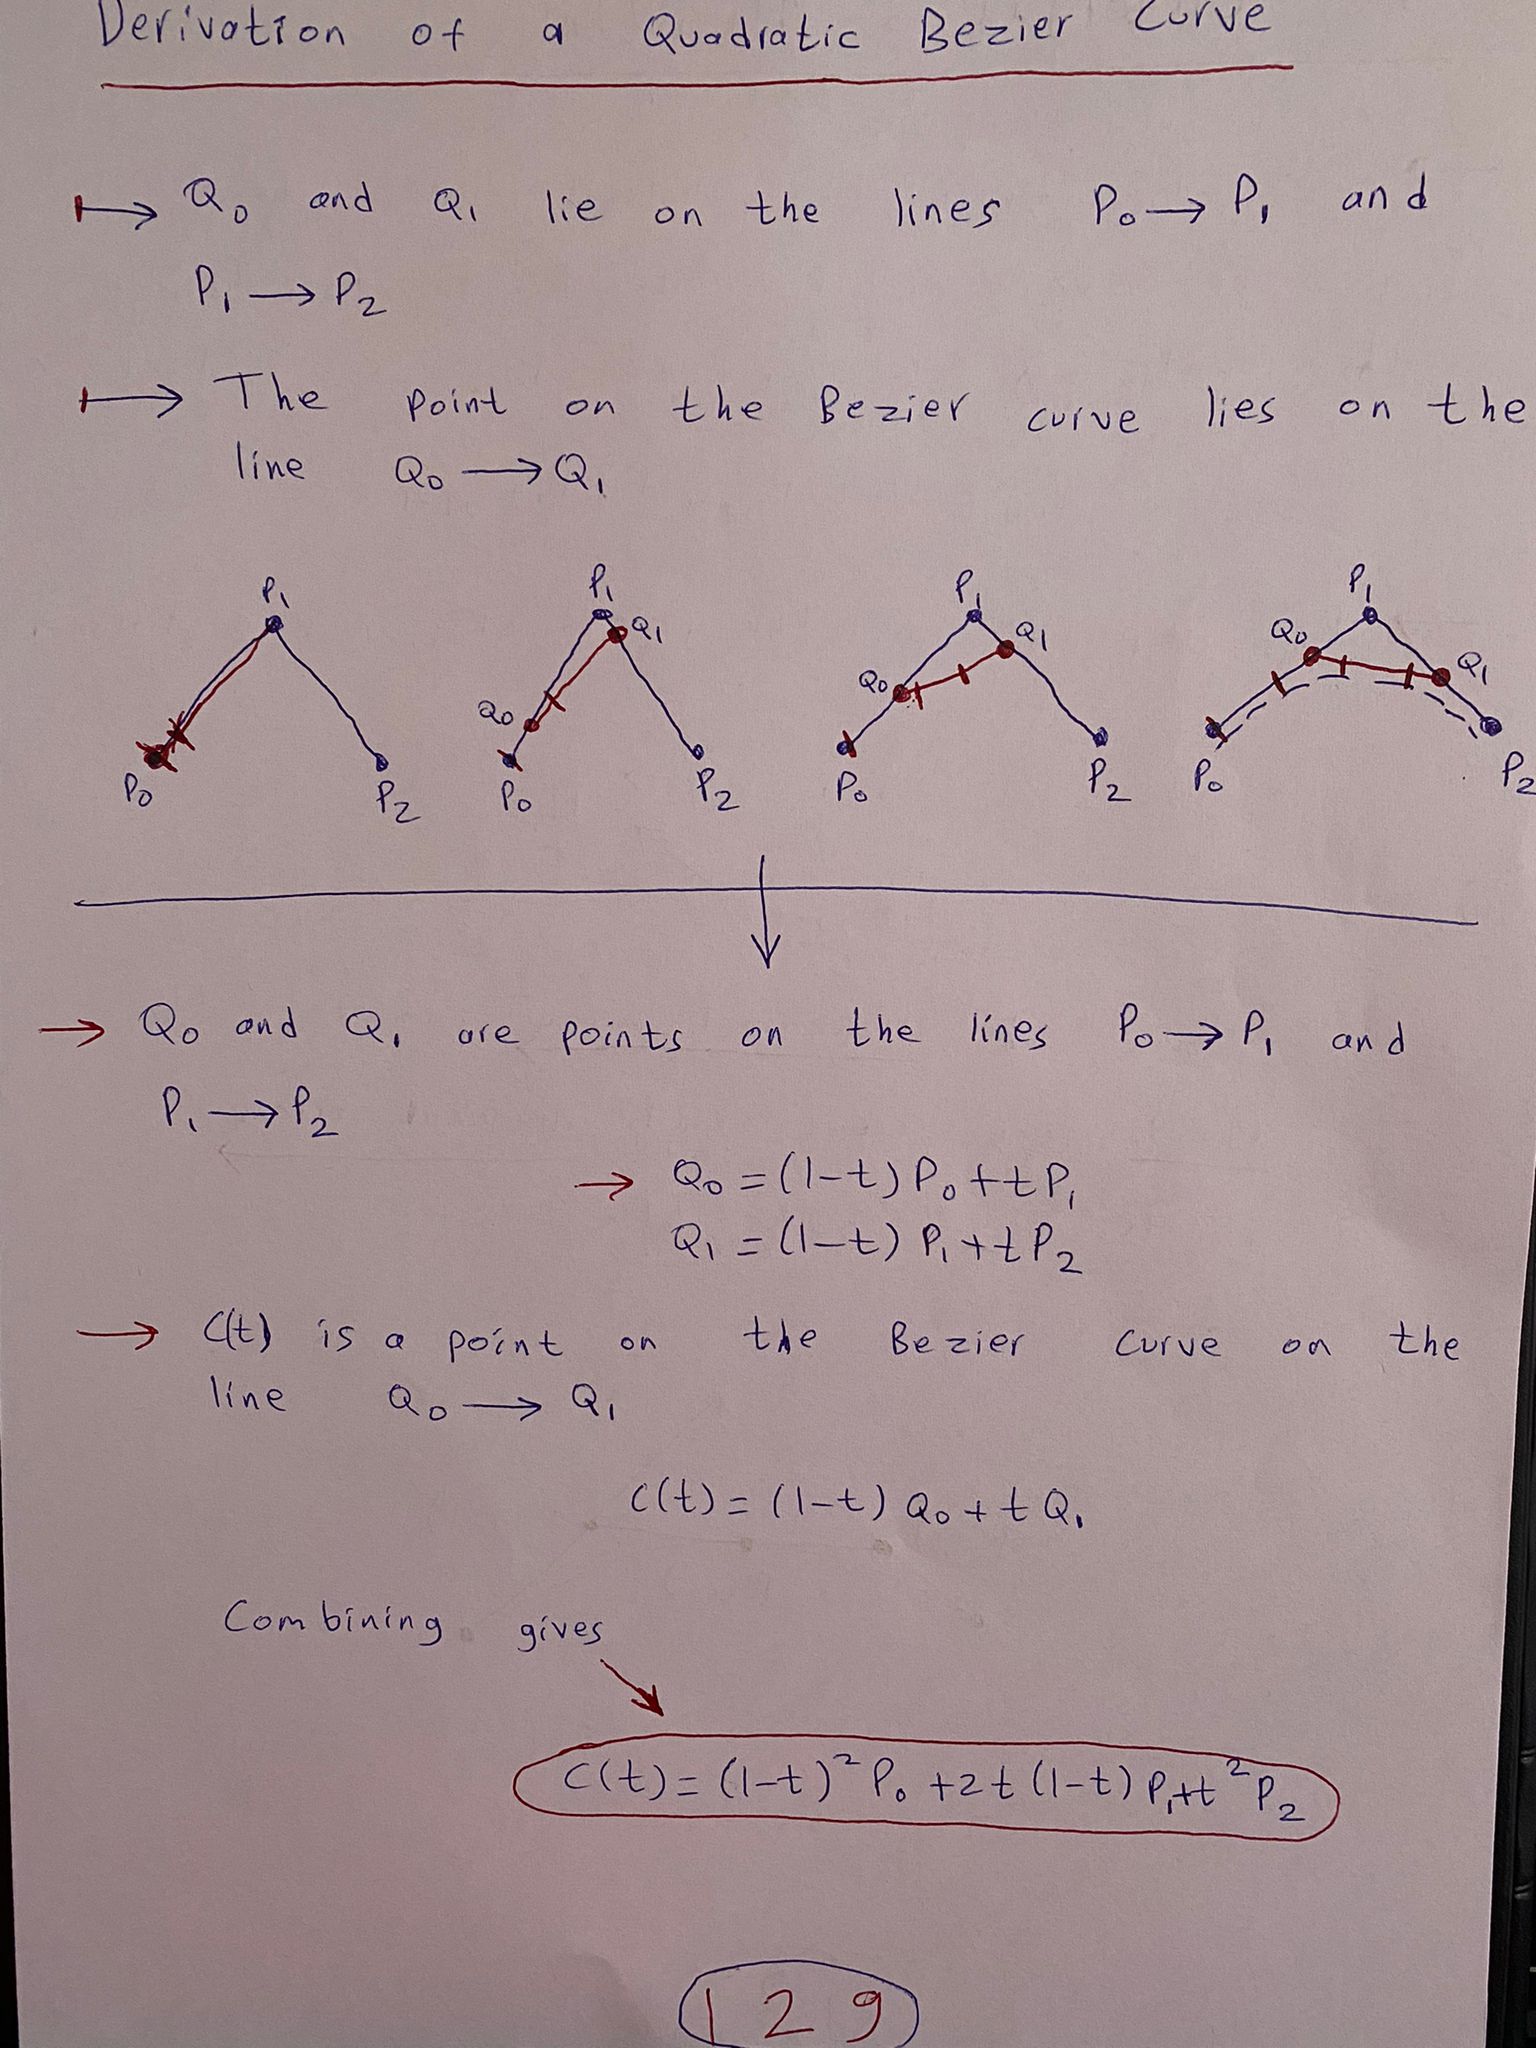 Derivation of a Quadratic Bezier Curve
Q₀ and Q₁ lie on the lines P₀ → P₁ and
P₁ → P₂
The point on the Bezier curve lies on the
line Q₀ → Q₁
P₁ P₁ P₁ P₁
Q₁ Q₁ Q₀ Q₁
Q₀ Q₀
P₀ P₂ P₀ P₂ P₀ P₂ P₀ P₂
→ Q₀ and Q₁ are points on the lines P₀ → P₁ and
P₁ → P₂
→ Q₀ = (1-t) P₀ + t P₁
Q₁ = (1-t) P₁ + t P₂
→ C(t) is a point on the Bezier curve on the
line Q₀ → Q₁
C(t) = (1-t) Q₀ + t Q₁
Combining gives
C(t) = (1-t)² P₀ + 2t (1-t) P₁ + t² P₂
129